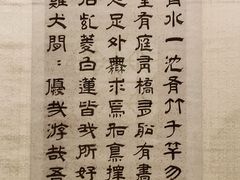 有水一池有竹千竿勿
堂有庭有橋有船有書
足外無求焉如鳥擇
石紫菱白蓮皆我所好
雞犬閒〻優哉游哉吾